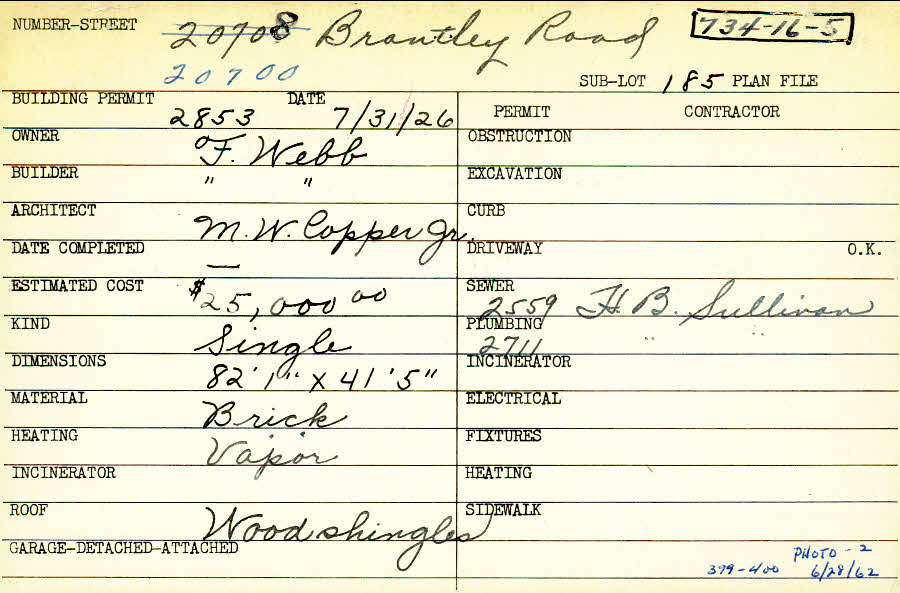 NUMBER-STREET 20708 Brantley Road 734-16-5
20700
SUB-LOT 185 PLAN FILE
BUILDING PERMIT 2853 DATE 7/31/26
PERMIT CONTRACTOR
OWNER F. Webb
OBSTRUCTION
BUILDER " "
EXCAVATION
ARCHITECT M. W. Copper Jr.
CURB
DATE COMPLETED —
DRIVEWAY O.K.
ESTIMATED COST $25,000 00
SEWER 2559 H. B. Sullivan
KIND Single
PLUMBING 2711 " "
DIMENSIONS 82'1" X 41'5"
INCINERATOR
MATERIAL Brick
ELECTRICAL
HEATING Vapor
FIXTURES
INCINERATOR
HEATING
ROOF Wood shingles
SIDEWALK
GARAGE-DETACHED-ATTACHED
PHOTO - 2
399-400 6/28/62